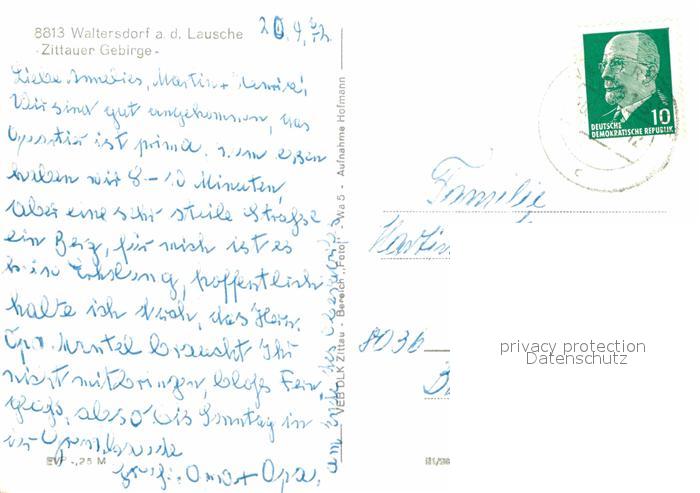 8813 Waltersdorf a. d. Lausche
- Zittauer Gebirge -
20.9.72
Liebe Annelies, Martin +
Wir sind gut angekommen, das
Quartier ist prima. zum essen
haben wir 8-10 Minuten,
aber eine sehr steile Straße
ein Berg, für mich ist es
kein Erholung, hoffentlich
halte ich durch, das Herz.
Mantel braucht Ihr
nicht mitbringen, bloß Fern
glas, also bis Sonntag in
der
Gruß. Oma + Opa.
am Ende des
EVP -,25 M
VEB DLK Zittau - Bereich „Foto" - Wa 5 - Aufnahme Hofmann
10
DEUTSCHE
DEMOKRATISCHE REPUBLIK
Familie
Martin
8036
privacy protection
Datenschutz